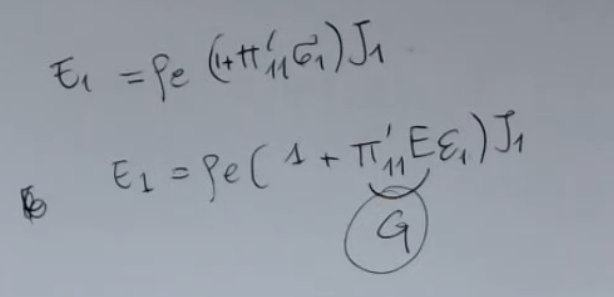 E₁ = ρe (1+π'₁₁σ₁)J₁
E₁ = ρe( 1 + π'₁₁Eε₁)J₁
G